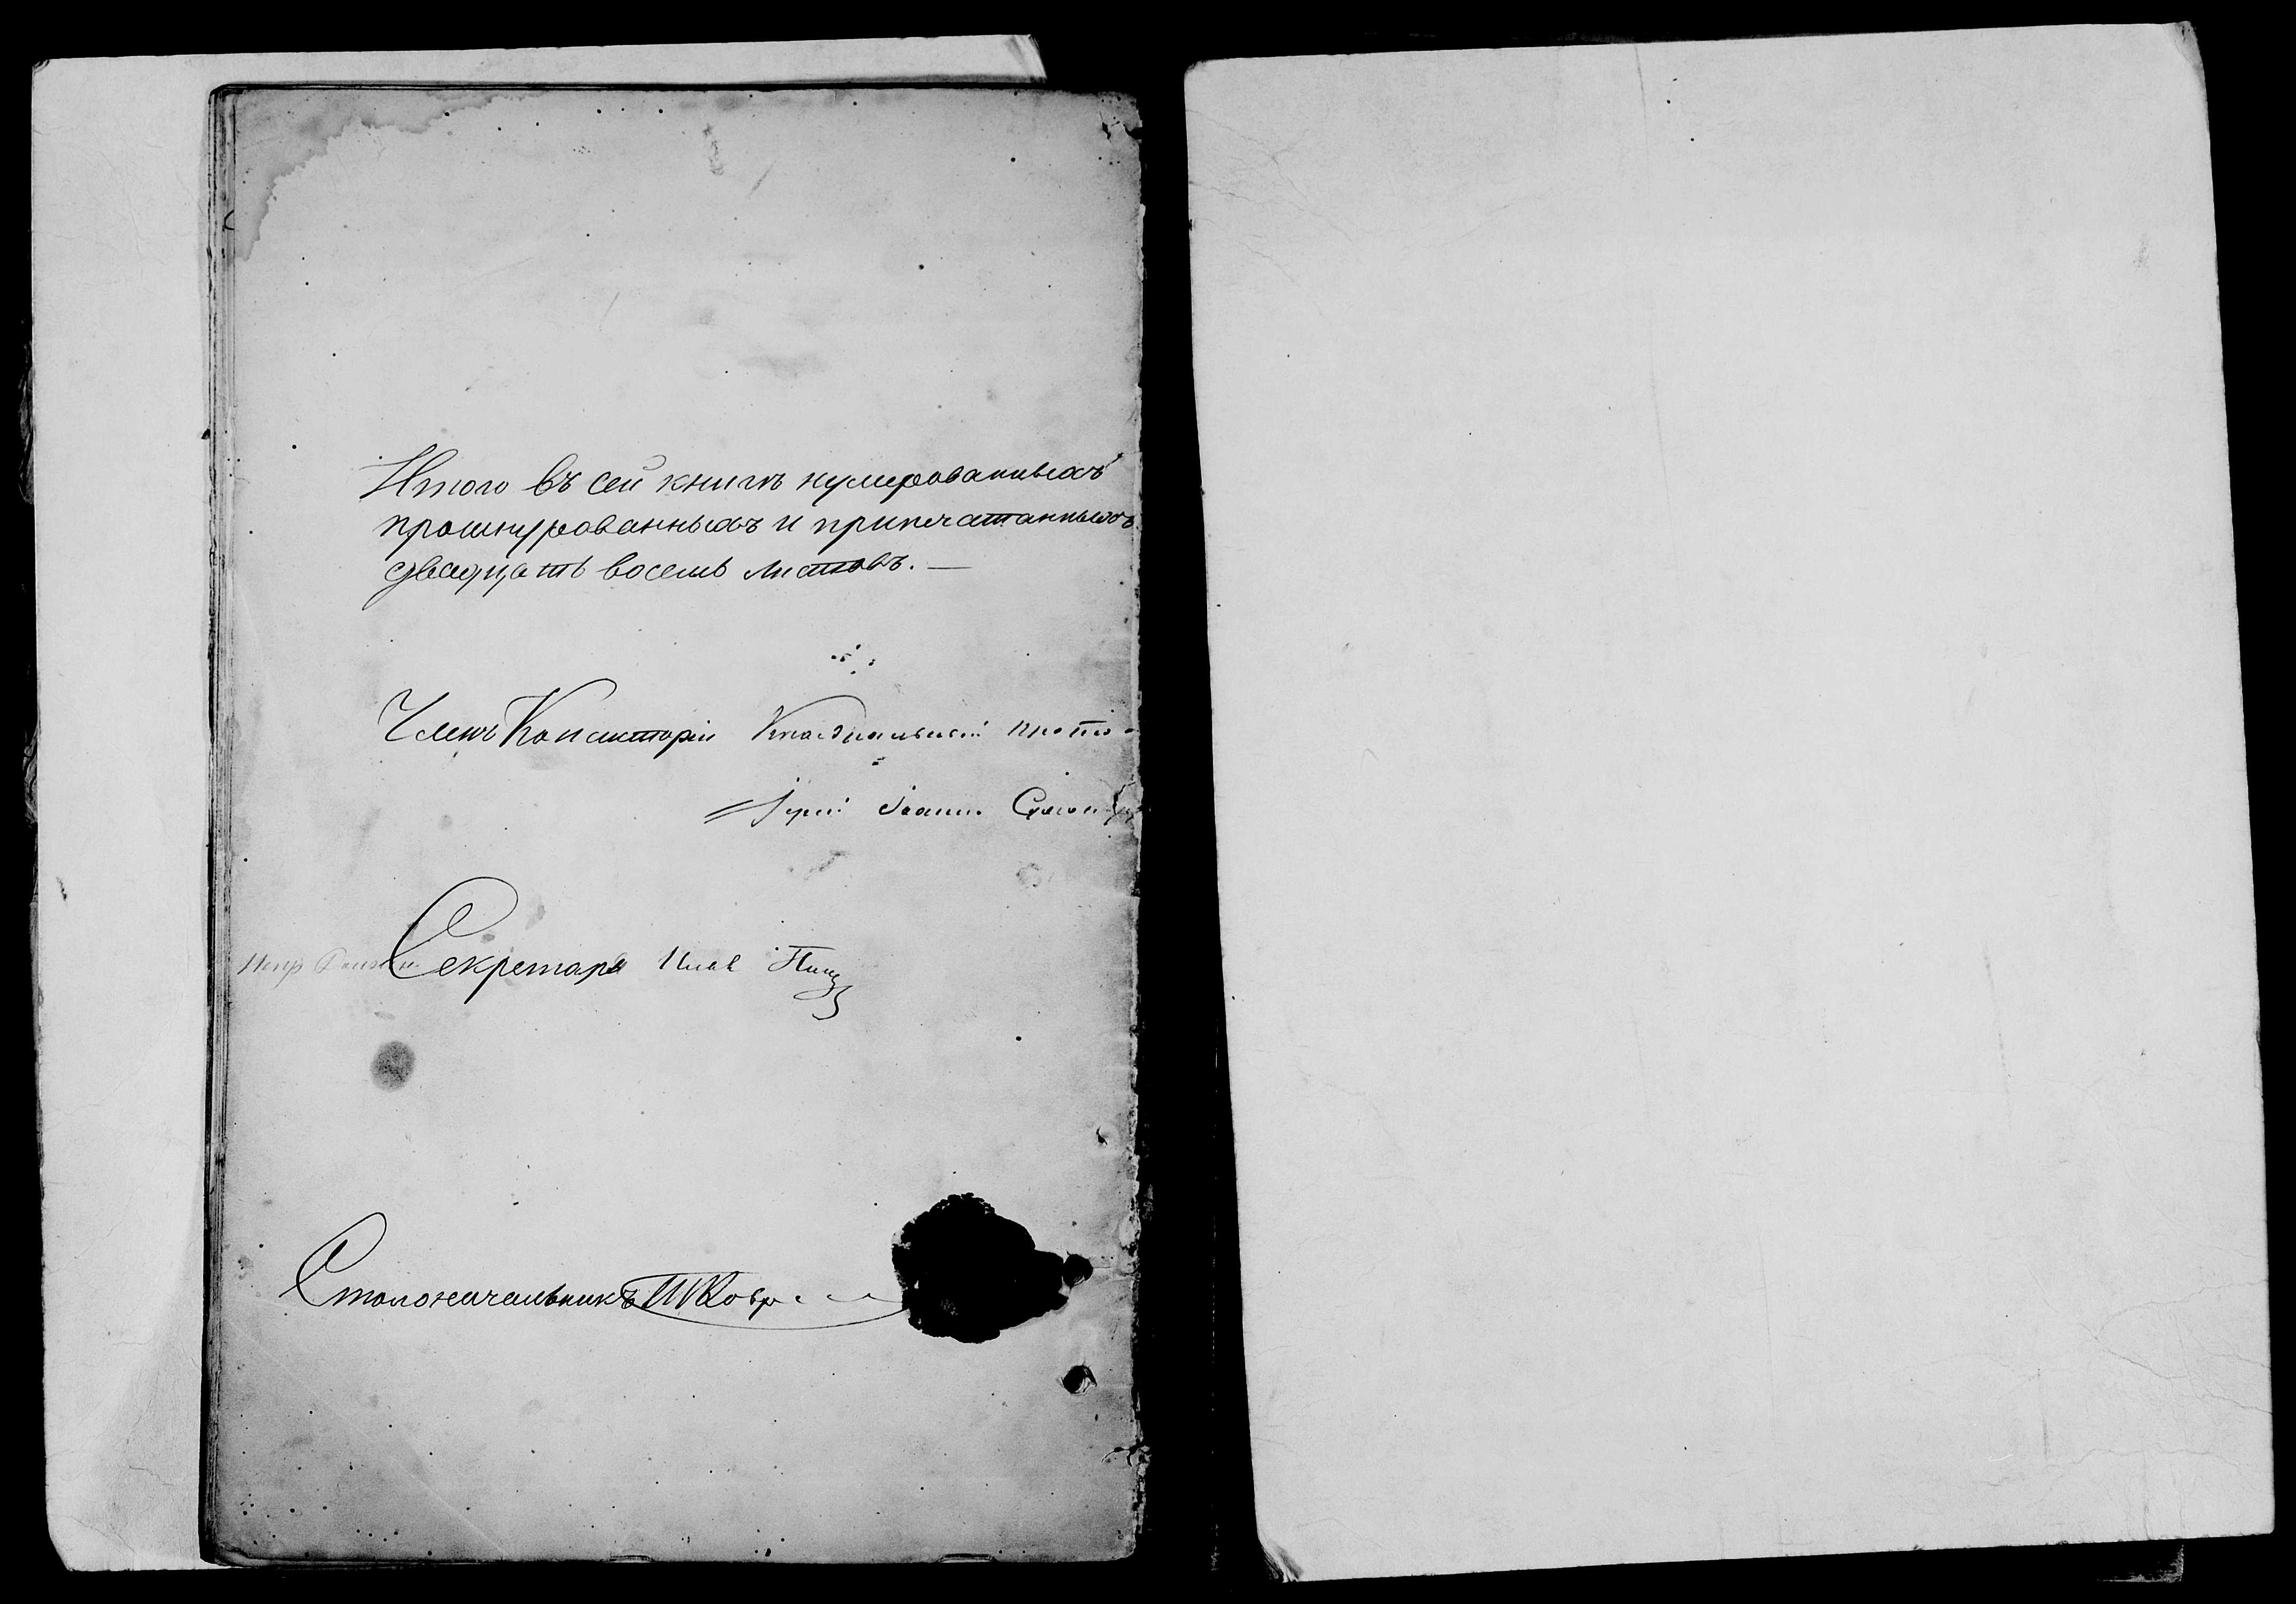 Итого въ сей книгѣ нумерованныхъ
прошнурованныхъ и припечатанныхъ
двадцать восемь листовъ. —
Членъ Консисторіи Каѳедральный прото-
=Іерей Іоаннъ
Секретарь
Столоначальникъ